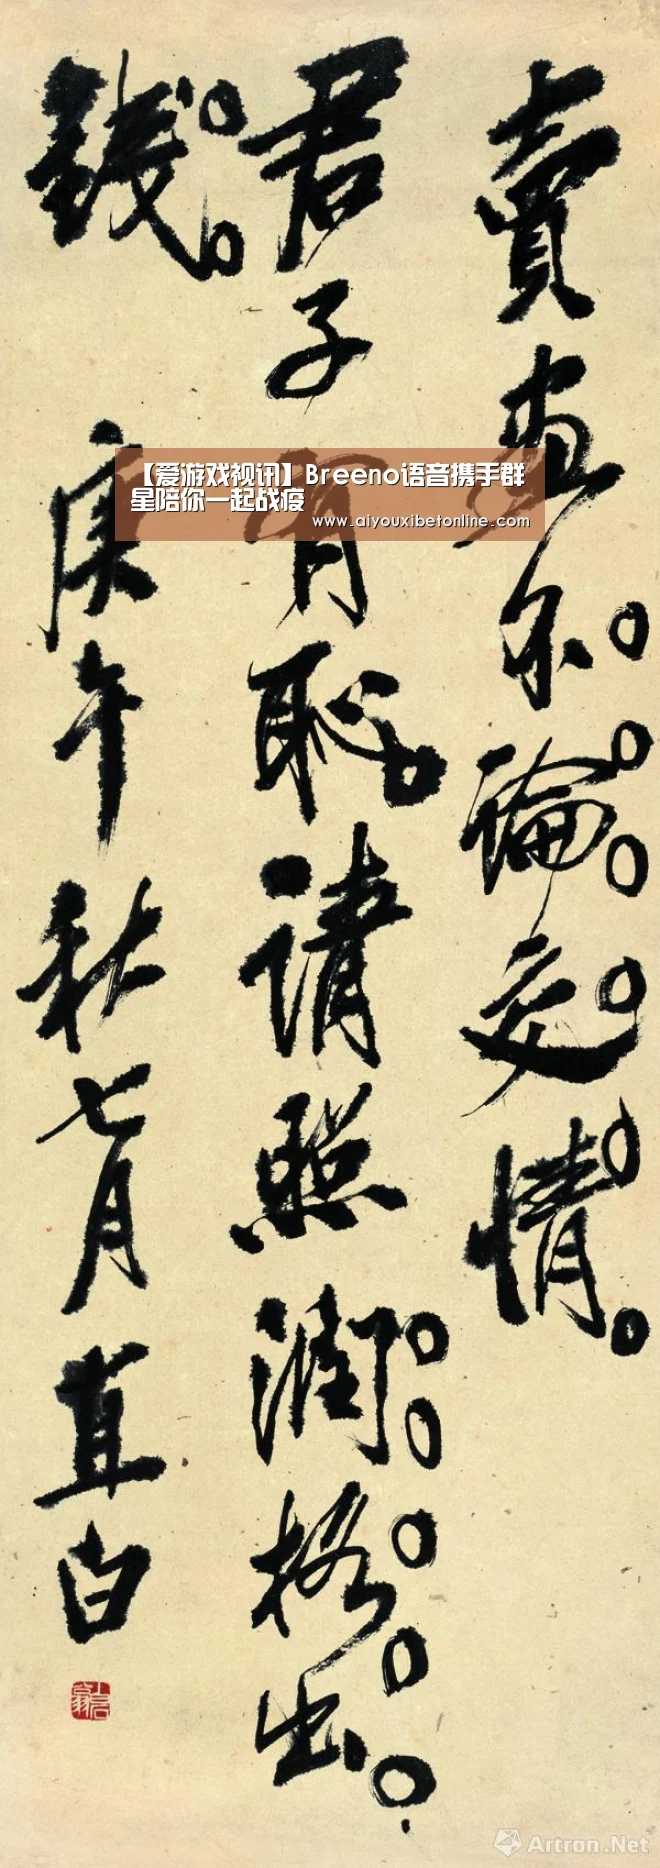 賣畫不論交情
君子有恥請照潤格出
錢 庚午秋七月直白
【爱游戏视讯】Breeno语音携手群
星陪你一起战疫
www_aiyouxibetonline_com
Artron.Net